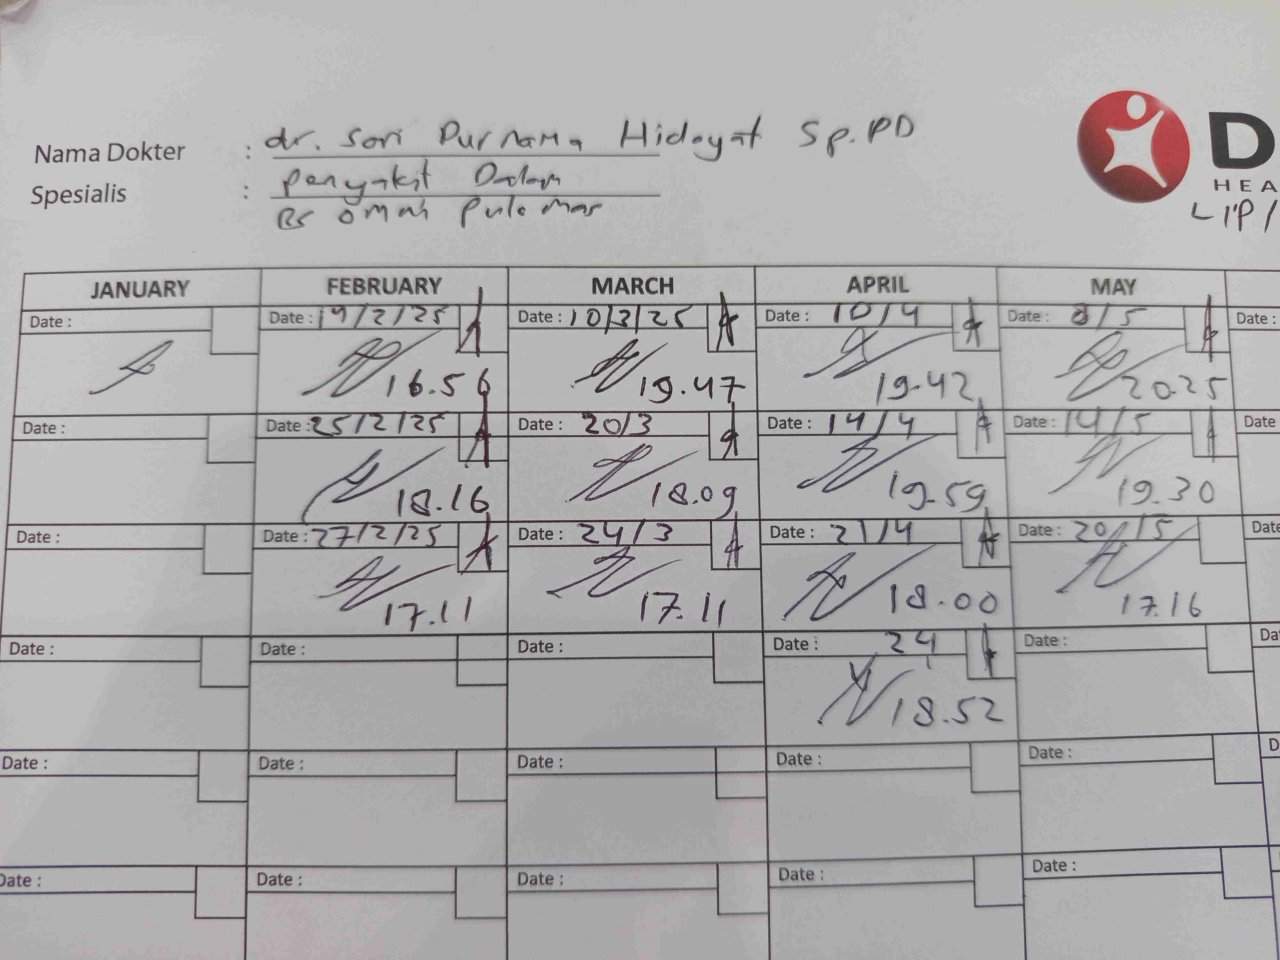 Nama Dokter : dr. Sori Purnama Hidayat Sp.PD
Spesialis : Penyakit Dalam
RS omni Pulo mas
D
HEA
LIP
JANUARY FEBRUARY MARCH APRIL MAY
Date : Date : 19/2/25 Date : 10/3/25 Date : 10/4 Date : 8/5 Date :
16.56 19.47 19.42 20.25
Date : Date : 25/2/25 Date : 20/3 Date : 14/4 Date : 14/5 Date
18.16 18.09 19.59 19.30
Date : Date : 27/2/25 Date : 24/3 Date : 21/4 Date : 20/5 Date
17.11 17.11 18.00 17.16
Date : Date : Date : Date : 24 Date : Da
18.52
Date : Date : Date : Date : Date : D
Date : Date : Date : Date : Date :